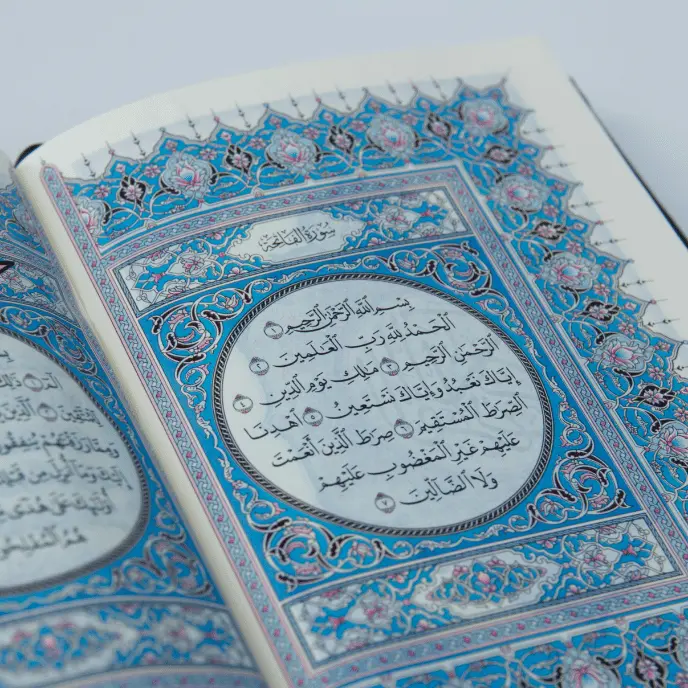 سُورَةُ الفَاتِحَةِ
بِسْمِ ٱللَّهِ ٱلرَّحْمَٰنِ ٱلرَّحِيمِ ١
ٱلْحَمْدُ لِلَّهِ رَبِّ ٱلْعَٰلَمِينَ ٢
ٱلرَّحْمَٰنِ ٱلرَّحِيمِ ٣ مَٰلِكِ يَوْمِ ٱلدِّينِ ٤
إِيَّاكَ نَعْبُدُ وَإِيَّاكَ نَسْتَعِينُ ٥ ٱهْدِنَا
ٱلصِّرَٰطَ ٱلْمُسْتَقِيمَ ٦ صِرَٰطَ ٱلَّذِينَ أَنْعَمْتَ
عَلَيْهِمْ غَيْرِ ٱلْمَغْضُوبِ عَلَيْهِمْ
وَلَا ٱلضَّآلِّينَ ٧
الٓمٓ ١ ذَٰلِكَ
ٱلَّذِينَ
وَمِمَّا رَزَقْنَٰهُمْ يُنفِقُو
إِلَيْكَ وَمَآ أُنزِلَ مِن قَبْلِ
أُو۟لَٰٓئِكَ عَلَىٰ هُدًى مِّن
هُمُ ٱلْمُفْلِحُو